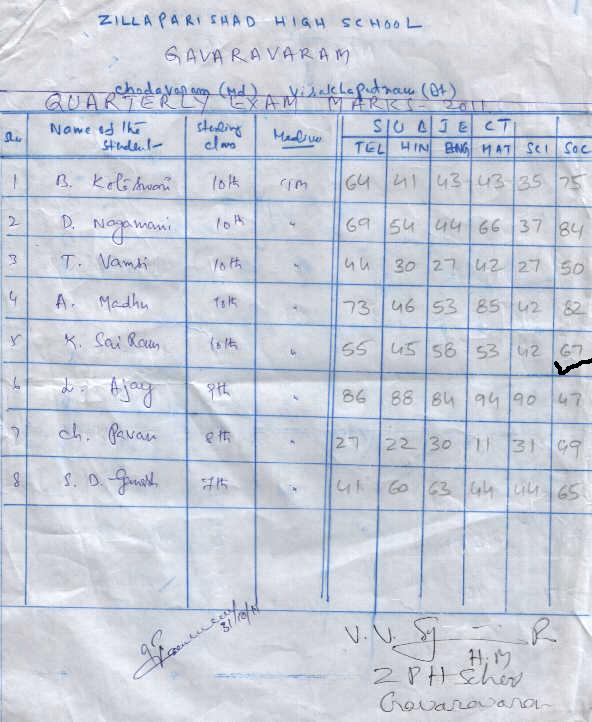 ZILLAPARISHAD HIGH SCHOOL
GAVARAVARAM
Chodavaram (Md) Visakhapatnam (Dt)
QUARTERLY EXAM MARKS - 2011
Name of the Student Studing class Medium SUBJECT
TEL HIN ENG MAT SCI SOC
1 B. 10th T/M 64 41 43 43 35 75
2 D. Nagamani 10th " 69 54 44 66 37 84
3 T. Vamsi 10th " 44 30 27 42 27 50
4 A. Madhu 10th " 73 46 53 85 42 82
5 K. Sai Ram 10th " 55 45 58 53 42 67
6 L. Ajay 9th " 86 88 84 94 90 47
7 Ch. Pavan 8th " 27 22 30 11 31 49
8 S. D. Ganesh 7th " 41 60 63 44 44 65
31/10/11
V. V.
H.M
Z P H School
Gavaravaram